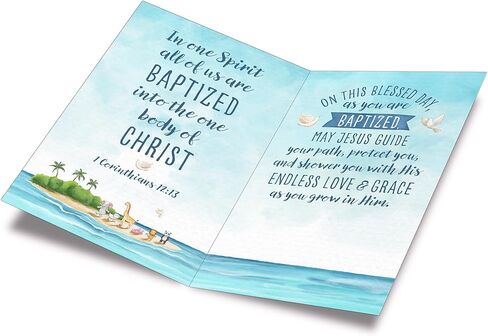 In one Spirit
all of us are
BAPTIZED
into the one
body of
CHRIST
1 Corinthians 12:13
ON THIS BLESSED DAY,
as you are
BAPTIZED,
MAY JESUS GUIDE
your path, protect you,
and shower you with His
ENDLESS LOVE & GRACE
as you grow in Him.